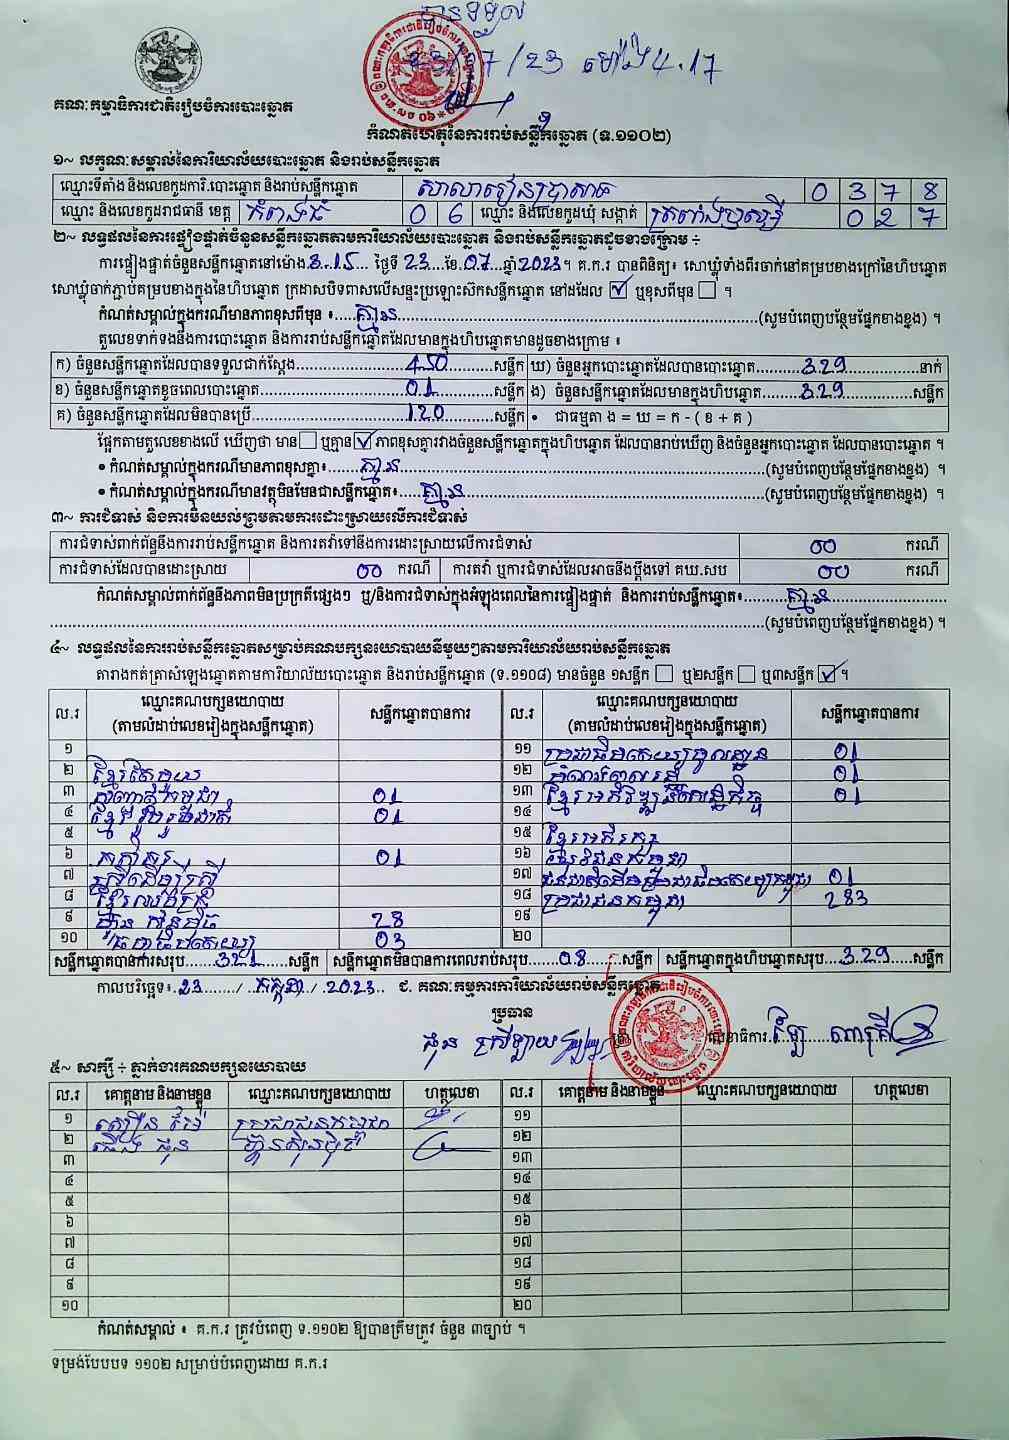 បានទទួល
23/7/23 ម៉ោង 4.17
គណៈកម្មាធិការជាតិរៀបចំការបោះឆ្នោត
កំណត់ហេតុនៃការរាប់សន្លឹកឆ្នោត (ទ.១១០២)
១~ លក្ខណៈសម្គាល់នៃការិយាល័យបោះឆ្នោត និងរាប់សន្លឹកឆ្នោត
ឈ្មោះទីតាំង និងលេខកូដការិ.បោះឆ្នោត និងរាប់សន្លឹកឆ្នោត សាលារៀនប្រាសាទ 0 3 7 8
ឈ្មោះ និងលេខកូដរាជធានី ខេត្ត កំពង់ធំ 0 6 ឈ្មោះ និងលេខកូដឃុំ សង្កាត់ ត្រពាំងឫស្សី 0 2 7
២~ លទ្ធផលនៃការផ្ទៀងផ្ទាត់ចំនួនសន្លឹកឆ្នោតតាមការិយាល័យបោះឆ្នោត និងរាប់សន្លឹកឆ្នោតដូចខាងក្រោម ÷
ការផ្ទៀងផ្ទាត់ចំនួនសន្លឹកឆ្នោតនៅម៉ោង 3.15 ថ្ងៃទី 23 ខែ 07 ឆ្នាំ 2023។ គ.ក.រ បានពិនិត្យ៖ សោឃ្លុំទាំងពីរចាក់នៅគម្របខាងក្រៅនៃហិបឆ្នោត
សោឃ្លុំចាក់ភ្ជាប់គម្របខាងក្នុងនៃហិបឆ្នោត ក្រដាសបិទពាសលើសន្ទះប្រឡោះស៊កសន្លឹកឆ្នោត នៅដដែល ☑ ឬខុសពីមុន ☐ ។
កំណត់សម្គាល់ក្នុងករណីមានភាពខុសពីមុន ៖ គ្មាន (សូមបំពេញបន្ថែមផ្នែកខាងខ្នង) ។
តួលេខទាក់ទងនឹងការបោះឆ្នោត និងការរាប់សន្លឹកឆ្នោតដែលមានក្នុងហិបឆ្នោតមានដូចខាងក្រោម ៖
ក) ចំនួនសន្លឹកឆ្នោតដែលបានទទួលជាក់ស្តែង 450 សន្លឹក ឃ) ចំនួនអ្នកបោះឆ្នោតដែលបានបោះឆ្នោត 329 នាក់
ខ) ចំនួនសន្លឹកឆ្នោតខូចពេលបោះឆ្នោត 01 សន្លឹក ង) ចំនួនសន្លឹកឆ្នោតដែលមានក្នុងហិបឆ្នោត 329 សន្លឹក
គ) ចំនួនសន្លឹកឆ្នោតដែលមិនបានប្រើ 120 សន្លឹក • ជាធម្មតា ង = ឃ = ក - ( ខ + គ )
ផ្អែកតាមតួលេខខាងលើ ឃើញថា មាន ☐ ឬគ្មាន ☑ ភាពខុសគ្នារវាងចំនួនសន្លឹកឆ្នោតក្នុងហិបឆ្នោត ដែលបានរាប់ឃើញ និងចំនួនអ្នកបោះឆ្នោត ដែលបានបោះឆ្នោត ។
• កំណត់សម្គាល់ក្នុងករណីមានភាពខុសគ្នា៖ គ្មាន (សូមបំពេញបន្ថែមផ្នែកខាងខ្នង) ។
• កំណត់សម្គាល់ក្នុងករណីមានវត្ថុមិនមែនជាសន្លឹកឆ្នោត៖ គ្មាន (សូមបំពេញបន្ថែមផ្នែកខាងខ្នង) ។
៣~ ការជំទាស់ និងការមិនយល់ព្រមតាមការដោះស្រាយលើការជំទាស់
ការជំទាស់ពាក់ព័ន្ធនឹងការរាប់សន្លឹកឆ្នោត និងការតវ៉ាទៅនឹងការដោះស្រាយលើការជំទាស់ 00 ករណី
ការជំទាស់ដែលបានដោះស្រាយ 00 ករណី ការតវ៉ា ឬការជំទាស់ដែលអាចនឹងប្តឹងទៅ គឃ.សប 00 ករណី
កំណត់សម្គាល់ពាក់ព័ន្ធនឹងភាពមិនប្រក្រតីផ្សេងៗ ឬ/និងការជំទាស់ក្នុងអំឡុងពេលនៃការផ្ទៀងផ្ទាត់ និងការរាប់សន្លឹកឆ្នោត៖ គ្មាន
(សូមបំពេញបន្ថែមផ្នែកខាងខ្នង) ។
៤~ លទ្ធផលនៃការរាប់សន្លឹកឆ្នោតសម្រាប់គណបក្សនយោបាយនីមួយៗតាមការិយាល័យរាប់សន្លឹកឆ្នោត
តារាងកត់ត្រាសំឡេងឆ្នោតតាមការិយាល័យបោះឆ្នោត និងរាប់សន្លឹកឆ្នោត (ទ.១១០៨) មានចំនួន ១សន្លឹក ☐ ឬ២សន្លឹក ☐ ឬ៣សន្លឹក ☑ ។
ល.រ ឈ្មោះគណបក្សនយោបាយ (តាមលំដាប់លេខរៀងក្នុងសន្លឹកឆ្នោត) សន្លឹកឆ្នោតបានការ ល.រ ឈ្មោះគណបក្សនយោបាយ (តាមលំដាប់លេខរៀងក្នុងសន្លឹកឆ្នោត) សន្លឹកឆ្នោតបានការ
១ ១១ ប្រជាធិបតេយ្យមូលដ្ឋាន 01
២ ខ្មែរតែមួយ ១២ កម្លាំងពលរដ្ឋ 01
៣ សញ្ជាតិកម្ពុជា 01 ១៣ ខ្មែរអភិវឌ្ឍន៍សេដ្ឋកិច្ច 01
៤ ខ្មែររួបរួមជាតិ 01 ១៤
៥ ១៥ ខ្មែរអភិរក្ស
៦ កសិករ 01 ១៦ យុវជនកម្ពុជា
៧ ស្ត្រីដើម្បីស្ត្រី ១៧ ជនជាតិដើមប្រជាធិបតេយ្យកម្ពុជា 01
៨ ខ្មែរឈប់ក្រ ១៨ ប្រជាជនកម្ពុជា 283
៩ ហ្វ៊ុនស៊ិនប៉ិច 28 ១៩
១០ ធម្មាធិបតេយ្យ 03 ២០
សន្លឹកឆ្នោតបានការសរុប 321 សន្លឹក សន្លឹកឆ្នោតមិនបានការពេលរាប់សរុប 08 សន្លឹក សន្លឹកឆ្នោតក្នុងហិបឆ្នោតសរុប 329 សន្លឹក
កាលបរិច្ឆេទ៖ 23 / កក្កដា / 2023 ជ. គណៈកម្មការការិយាល័យរាប់សន្លឹកឆ្នោត
ប្រធាន
លេខាធិការ
៥~ សាក្សី ÷ ភ្នាក់ងារគណបក្សនយោបាយ
ល.រ គោត្តនាម និងនាមខ្លួន ឈ្មោះគណបក្សនយោបាយ ហត្ថលេខា ល.រ គោត្តនាម និងនាមខ្លួន ឈ្មោះគណបក្សនយោបាយ ហត្ថលេខា
១ ប្រជាជនកម្ពុជា ១១
២ ហ្វ៊ុនស៊ិនប៉ិច ១២
៣ ១៣
៤ ១៤
៥ ១៥
៦ ១៦
៧ ១៧
៨ ១៨
៩ ១៩
១០ ២០
កំណត់សម្គាល់ ៖ គ.ក.រ ត្រូវបំពេញ ទ.១១០២ ឱ្យបានត្រឹមត្រូវ ចំនួន ៣ច្បាប់ ។
ទម្រង់បែបបទ ១១០២ សម្រាប់បំពេញដោយ គ.ក.រ